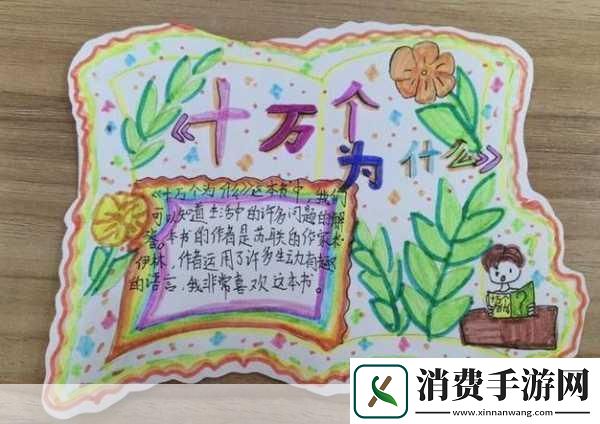 《十万个
为什么》
《十万个为什么》这本书中，我们
可以知道生活中的许多问题的解
答。本书的作者是苏联的作家米·
伊林，作者运用了许多生动有趣
的语言，我非常喜欢这本书。
?
消费手游网
www.xinnanwang.com